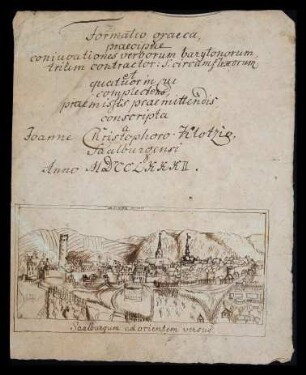 Formatio graeca,
praecipue
coniugationes verborum barytonorum,
trium contractor: s. circumflexorum
et
quatuor in μι
complectens,
praemissis praemittendis
conscripta
a
Ioanne Christophoro Klotzio
Saalburgensi
Anno MDCCLXXXII.
Saalburgum ad orientem versus